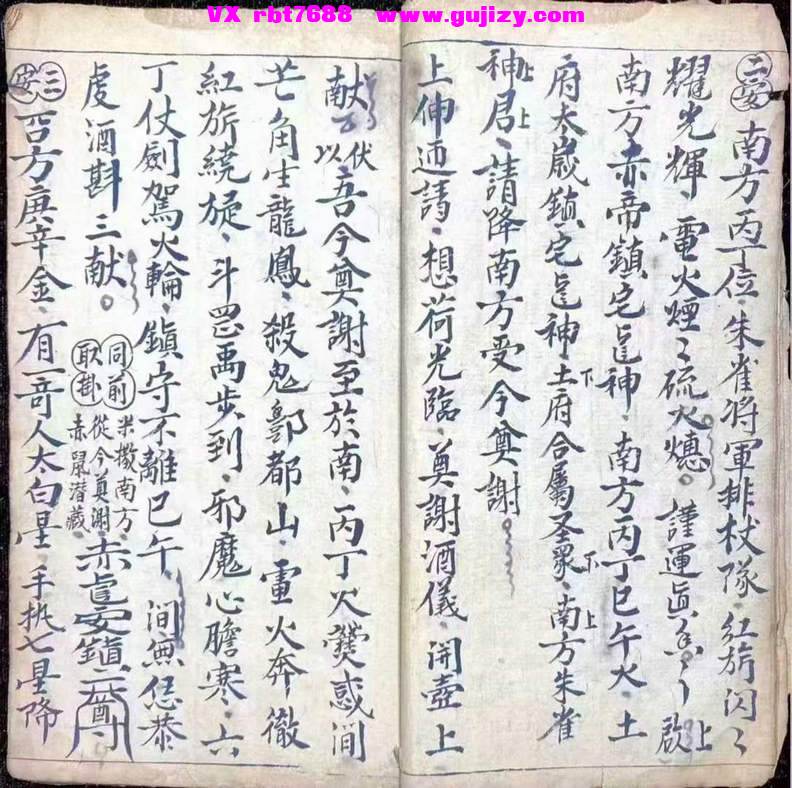 VX rbt7688 www.gujizy.com
二安 南方丙丁位、朱雀将軍排杖隊、紅旂闪〻
耀光輝、電火煙〻硫火煾。謹運真香 啟上
南方赤帝鎮宅神、南方丙丁巳午火、土
府太歲鎮宅神、土下府合屬圣眾、下南方朱雀上
神上君、上請降南方受今奠謝。
上伸迊請、想荷光臨、奠謝酒儀、開壺上
献 伏以 吾今奠謝至於南、丙丁火熒惑间
芒角生龍鳳、殺鬼酆都山、雷火奔徹
紅旂繞旋、斗罡禹步到、邪魔心膽寒、六
丁仗劍駕火輪、鎮守不離巳午、间無恁恭
虔酒斟三献。 同前 取掛 米撒南方、從今奠謝、赤鼠潜藏、赤虎安鎮
三安 西方庚辛金、有一奇人太白星、手执七星降